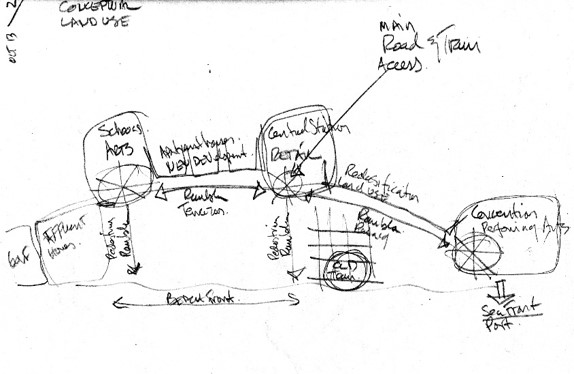 OCT 13
CONCEPTUAL
LAND USE
MAIN
Road & Train
Access.
Schools
ARTS
Apartment
NEW Development.
Central Station
RETAIL
Rambla
Redensification
Land use
Rambla
Convention
Performing Arts
Golf
Affluent
Homes
Pedestrian
Rambla
Pedestrian
Rambla
OLD
Town
Beach Front
Sea Front
Port.